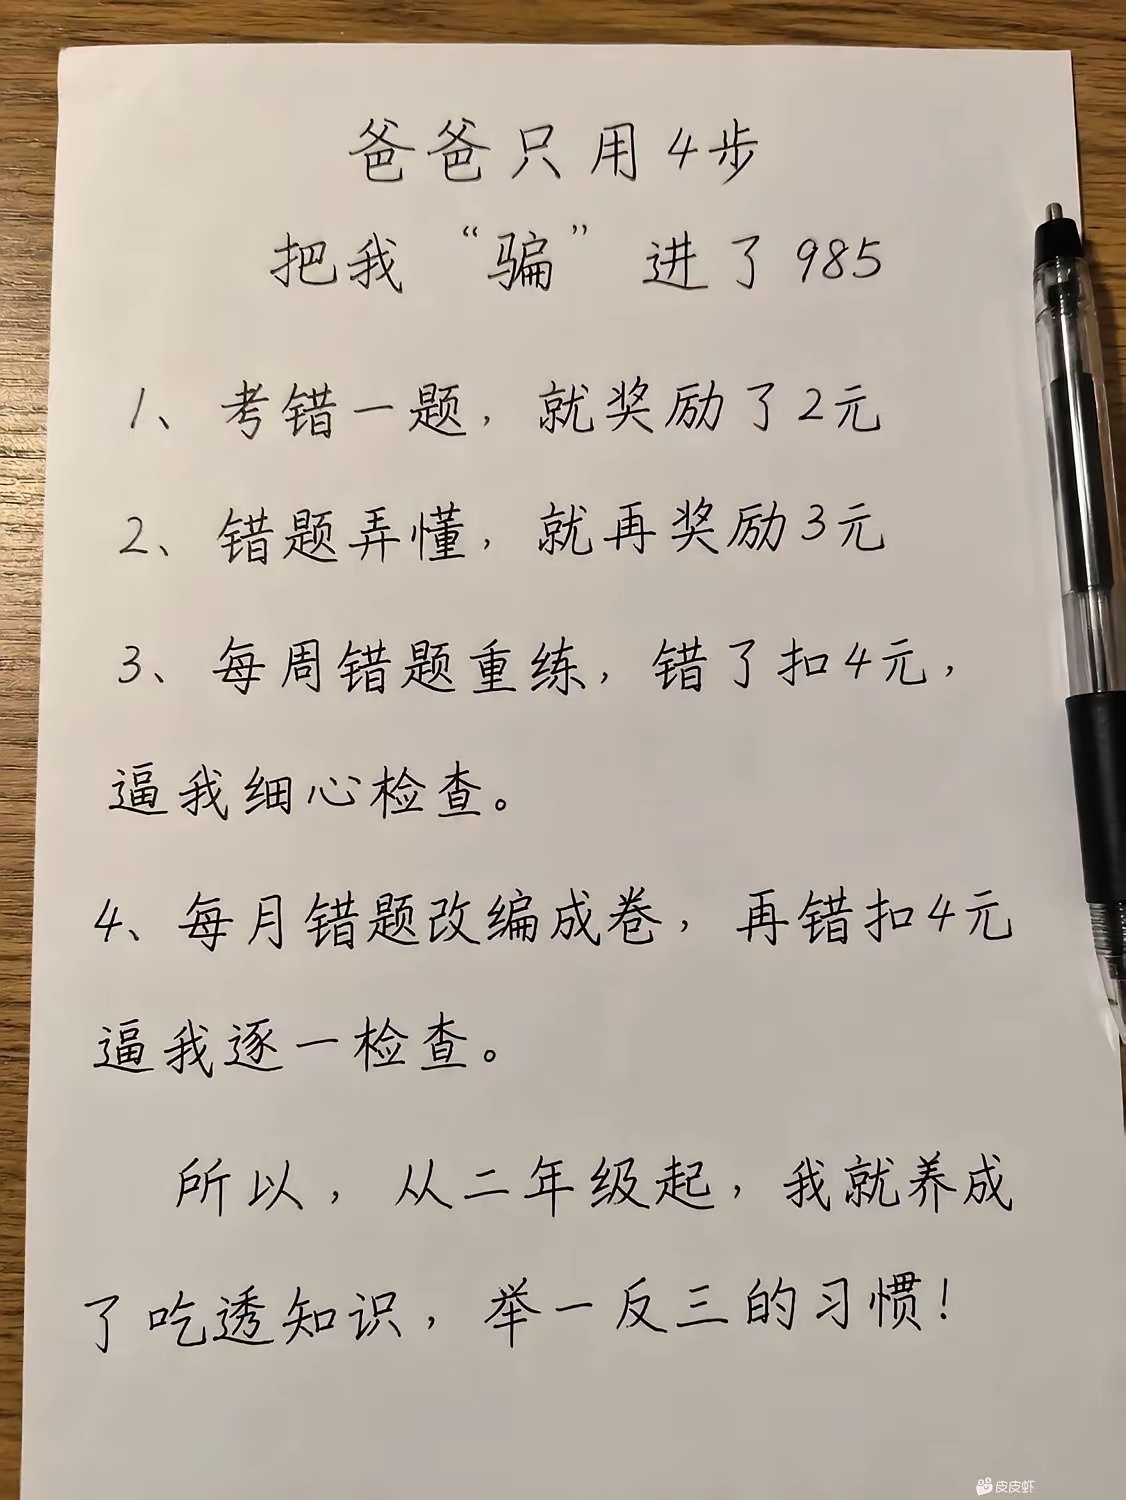 爸爸只用4步
把我“骗”进了985
1、考错一题，就奖励了2元
2、错题弄懂，就再奖励3元
3、每周错题重练，错了扣4元，
逼我细心检查。
4、每月错题改编成卷，再错扣4元
逼我逐一检查。
所以，从二年级起，我就养成
了吃透知识，举一反三的习惯！
皮皮虾